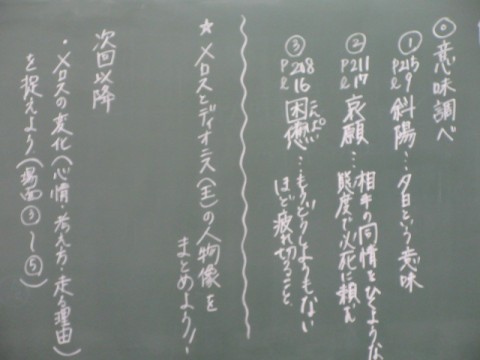 ◎意味調べ
① P215 l9 斜陽…夕日という意味
② P211 l17 哀願…相手の同情をひくような
態度で必死に頼む
③ P218 l16 困憊…もうどうしようもない
こんぱい
ほど疲れ切ること
★メロスとディオニス(王)の人物像を
まとめよう!
次回以降
・メロスの変化(心情・考え方・走る理由)
を捉えよう(場面③〜⑤)